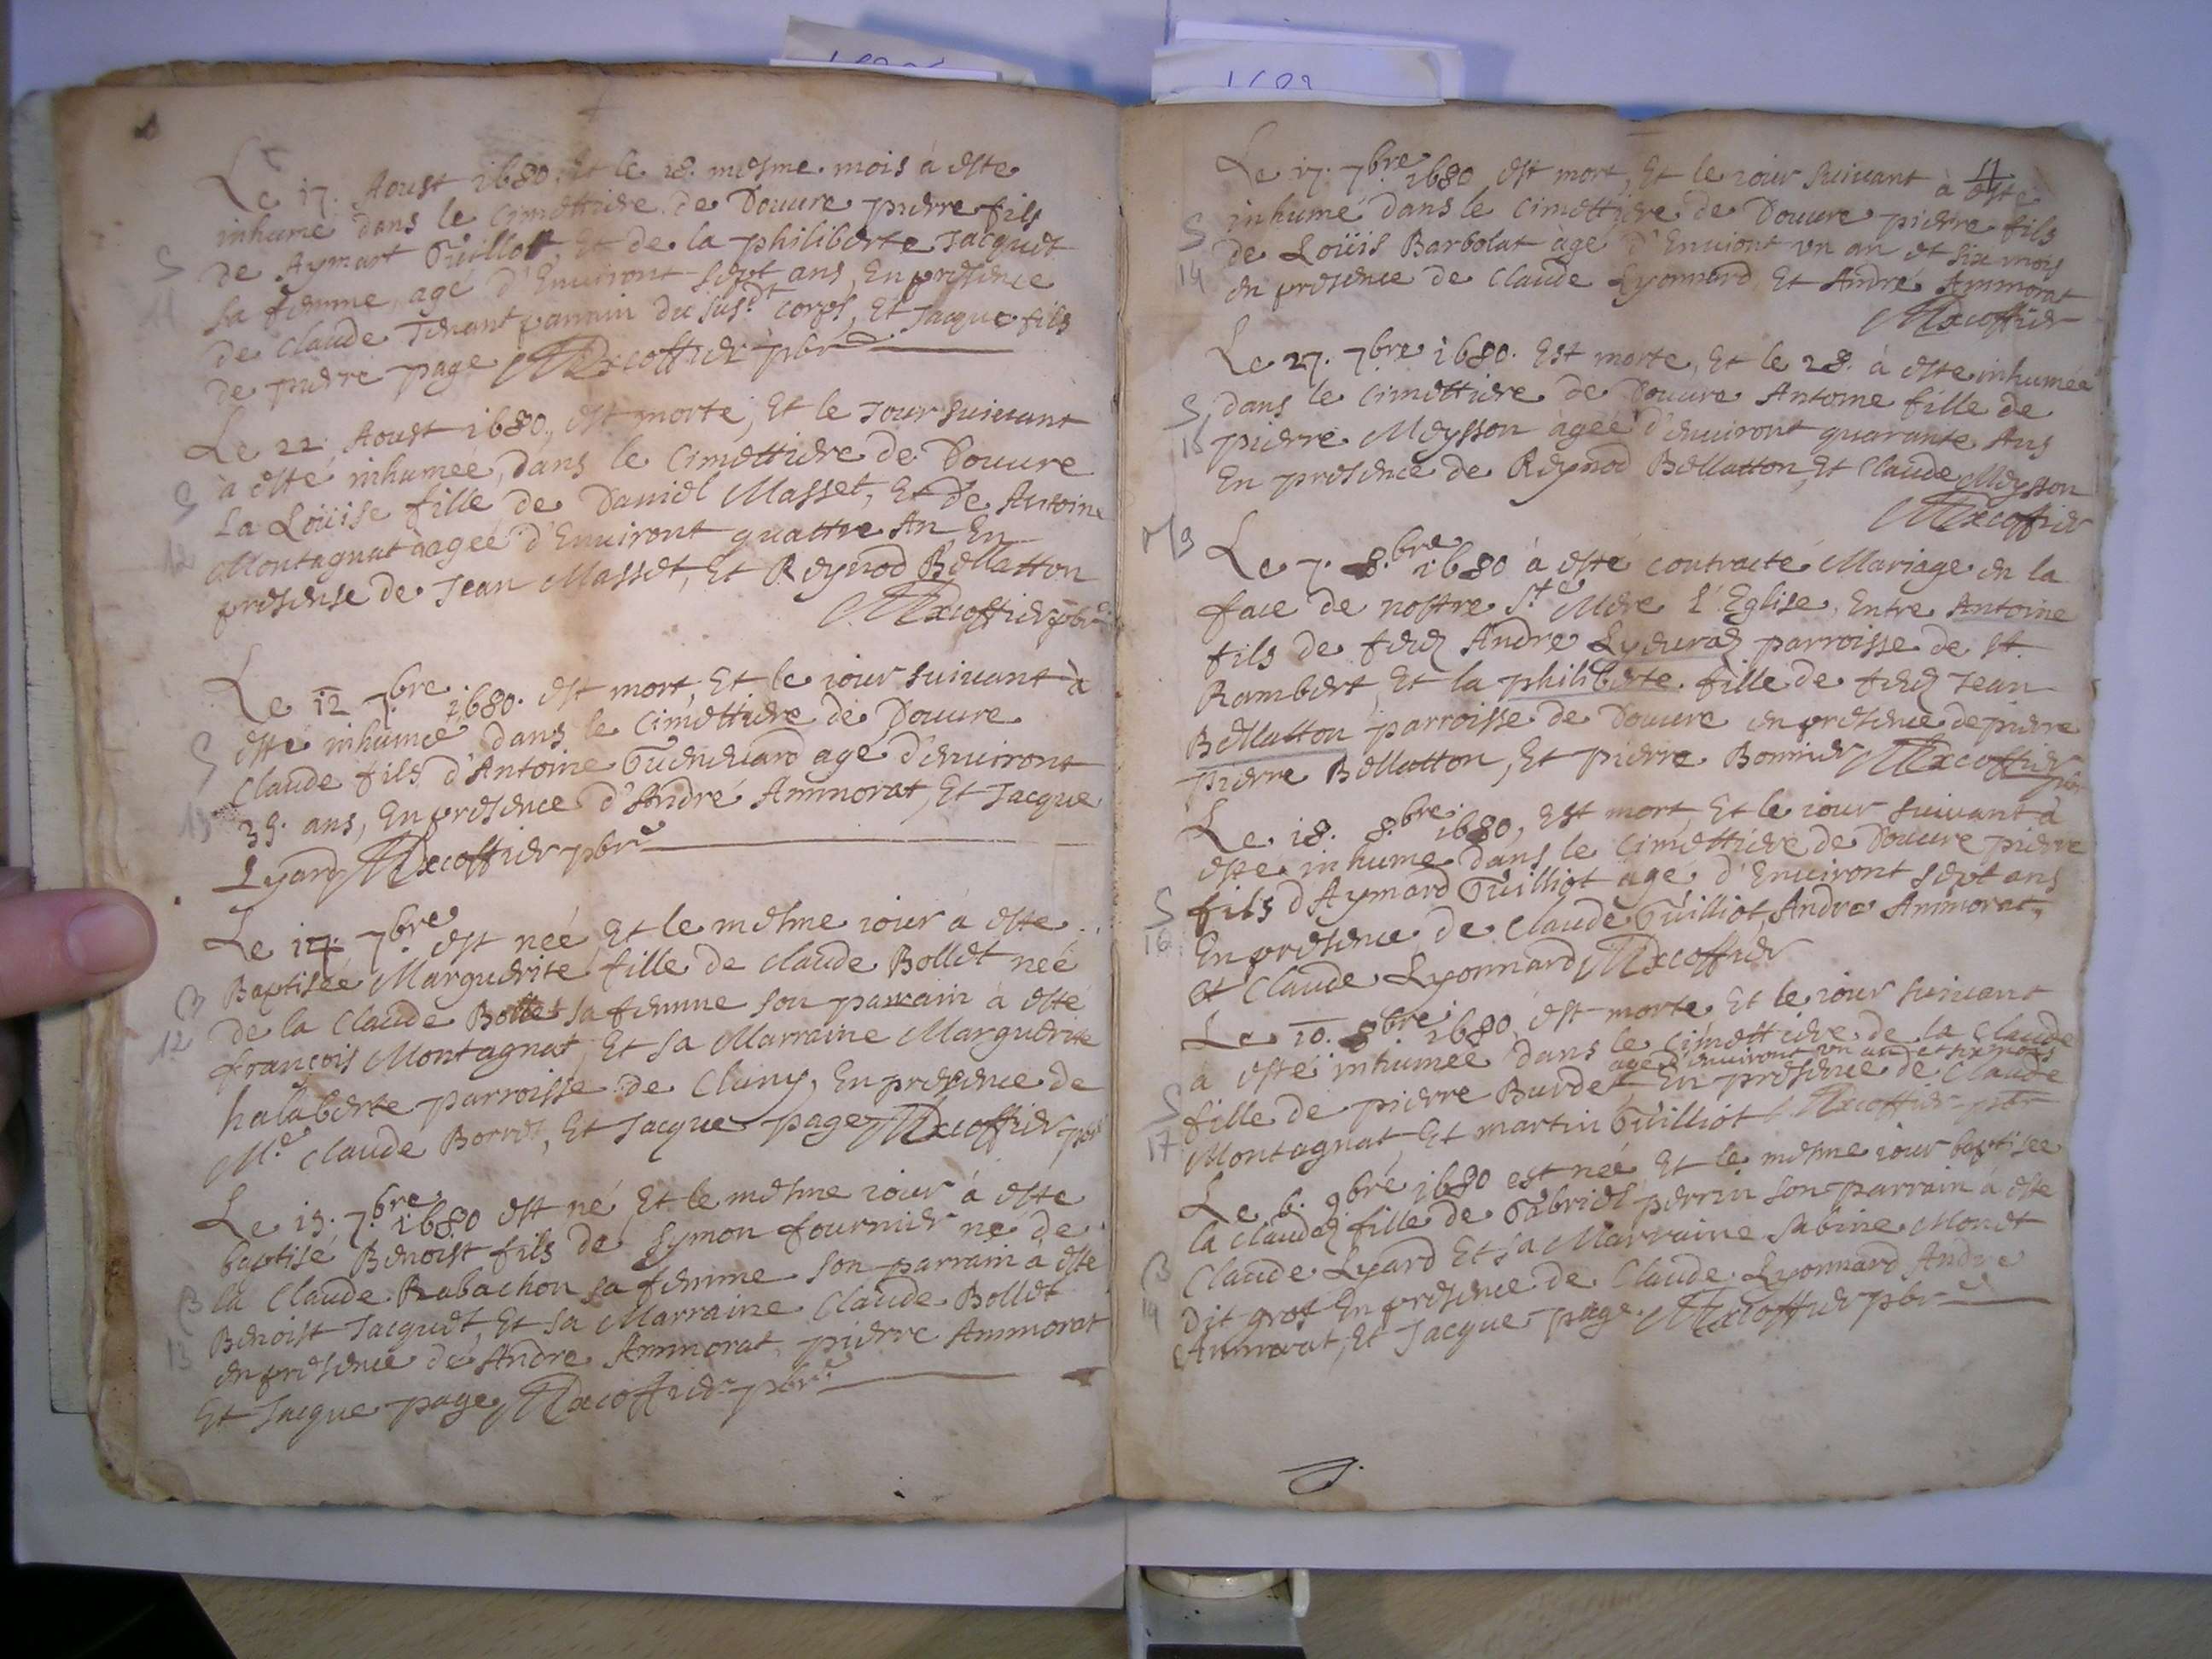 Le 17. Aoust 1680. Et le 18. mesme mois à esté
inhumé dans le Cimettiere de Douure pierre fils
de Aymart Guillot, Et de la philiberte Jacquet
S
11
sa femme, agé d'Enuiront sept ans, En presence
de Claude Tenant parrain du susdt. corps, Et Jacque fils
de pierre page Excoffier pbre
Le 22. Aoust 1680, est morte, Et le Jour suiuant
à esté inhumeé, dans le Cimettiere de Douure
S
12
La Loüise fille de Daniel Masset, Et de Antoine
Montagnat àgeé d'Enuiront quattre An, En
presense de Jean Masset, Et Reynod Bellatton
Excoffier pbre
Le 12 7.bre 1680. est mort, Et le iour suiuant à
esté inhumé dans le Cimettiere de Douure
S
13
Claude fils d'Antoine age d'enuiront
35. ans, En presence d'André Ammorat, Et Jacque
Lyard Excoffier pbre
Le 17. 7.bre est neé Et le mesme iour à esté
Baptiseé Marguerite fille de Claude Bollet neé
B
12
de la Claude sa femme son parrain à esté
françois Montagnat, Et sa Marraine Marguerite
halaberte parroisse de Cluny, En presence de
Me. Claude Borret, Et Jacque page Excoffier pbr
Le 19. 7.bre 1680 est né, Et le mesme iour à esté
baptisé Benoist fils de Symon fournier né de
B
13
la Claude Rabachon sa femme son parrain a esté
Benoist Jacquet, Et sa Marraine Claude Bollet
en presence de André Ammorat, pierre Ammorat
Et Jacque page Excoffier pbre
11
Le 17. 7.bre 1680 est mort, Et le iour suiuant à esté
S
14
inhumé dans le Cimettiere de Douure pierre fils
de Loüis Barbolat àgé d'Enuiront vn an et six mois
en presence de Claude Lyonnard Et André Ammorat
Excoffier
Le 27. 7.bre 1680. Est morte, Et le 28. à esté inhumeé
S
15
dans le Cimettiere de Douure Antoine fille de
pierre Meysson àgeé d'enuiront quarante Ans
En presence de Reynod Bellatton, Et Claude Meysson
Excoffier
M 3
Le 7. 8.bre 1680 à esté contracté Mariage en la
face de nostre Ste. Mere L'Eglise, Entre Antoine
fils de feu André parroisse de St.
Rambert, Et la philiberte fille de feu Jean
Bellatton parroisse de Douure en presence de pierre
pierre Bellatton, Et pierre Bonnier Excoffier
pbr
Le 18. 8.bre 1680, Est mort, Et le iour suiuant à
esté inhumé dans le Cimettiere de Douure pierre
S
16
fils d'Aymard Guilliot agé d'Enuiront sept ans
En presence de Claude Guilliot, André Ammorat,
et Claude Lyonnard Excoffier
Le 10. 8bre. 1680, est morte Et le iour suiuant
à esté inhumeé dans le Cimettiere de la Claude
ageé d'enuiront vn an et six mois
S
17
fille de pierre Burdet En presence de Claude
Montagnat, Et martin Guilliot Excoffier pbr
Le 6. 9bre 1680 est neé Et le mesme iour baptiseé
la Claude fille de Gabriel perrin son parrain à esté
B
14
Claude Lyard Et sa Marraine Sabine Monet
Dit gros En presence de Claude Lyonnard André
Ammorat, Et Jacque page Excoffier pbre